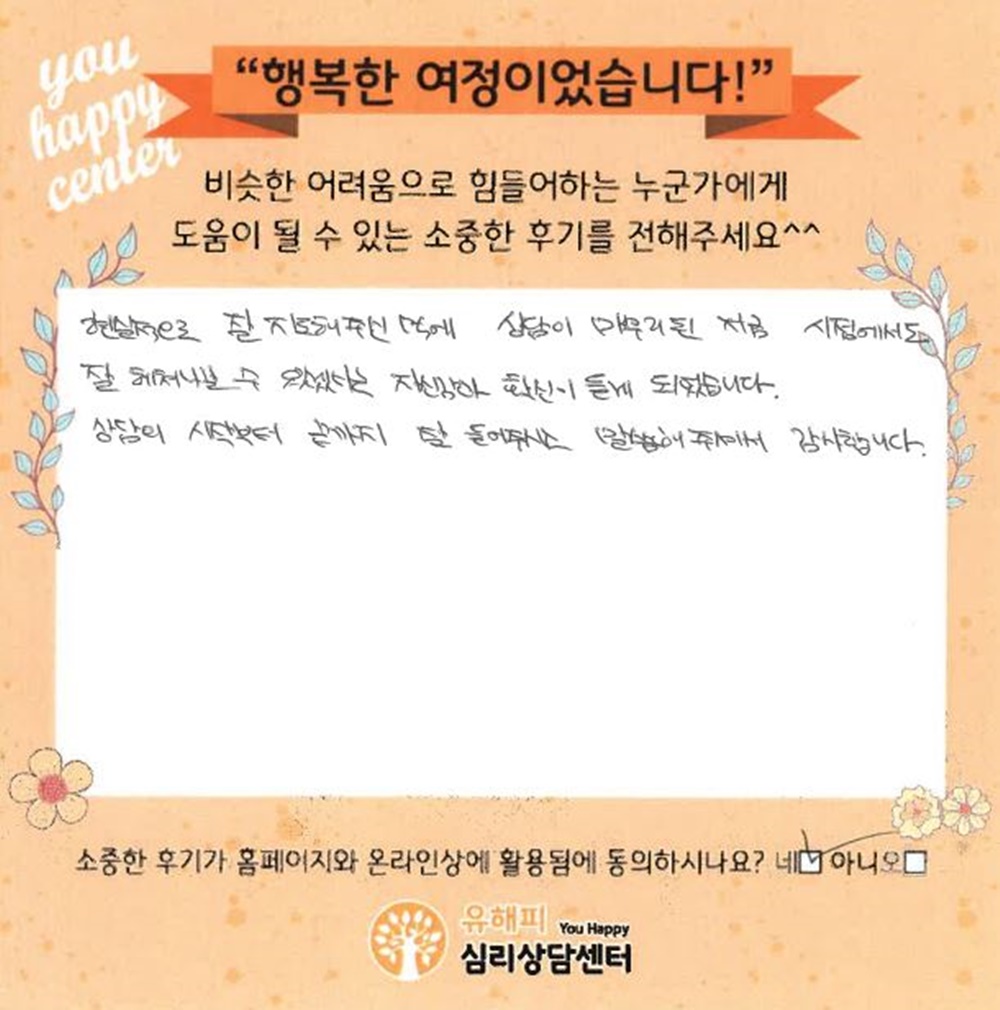 you
happy
center
“행복한 여정이었습니다!”
비슷한 어려움으로 힘들어하는 누군가에게
도움이 될 수 있는 소중한 후기를 전해주세요^^
현실적으로 잘 지도해주신 덕에 상담이 마무리된 지금 시점에서도
잘 헤쳐나갈 수 있겠다는 자신감과 확신이 들게 되었습니다.
상담의 시작부터 끝까지 잘 들어주시고 말씀해주셔서 감사합니다.
소중한 후기가 홈페이지와 온라인상에 활용됨에 동의하시나요? 네 아니오
유해피 You Happy
심리상담센터